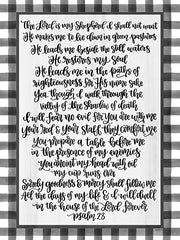 The Lord is my Shepherd, I shall not want
He makes me to lie down in green pastures
He leads me beside the still waters
He restores my Soul
He leads me in the paths of
righteousness for His name sake
Yea, though I walk through the
valley of the Shadow of death
I will fear no evil for you are with me
Your rod & your staff, they comfort me
You prepare a table before me
in the presence of enemies
You anoint my head with oil
my cup runs over
Surely goodness & mercy shall follow me
All the days of my life & I will dwell
in the house of the Lord forever
Psalm 23